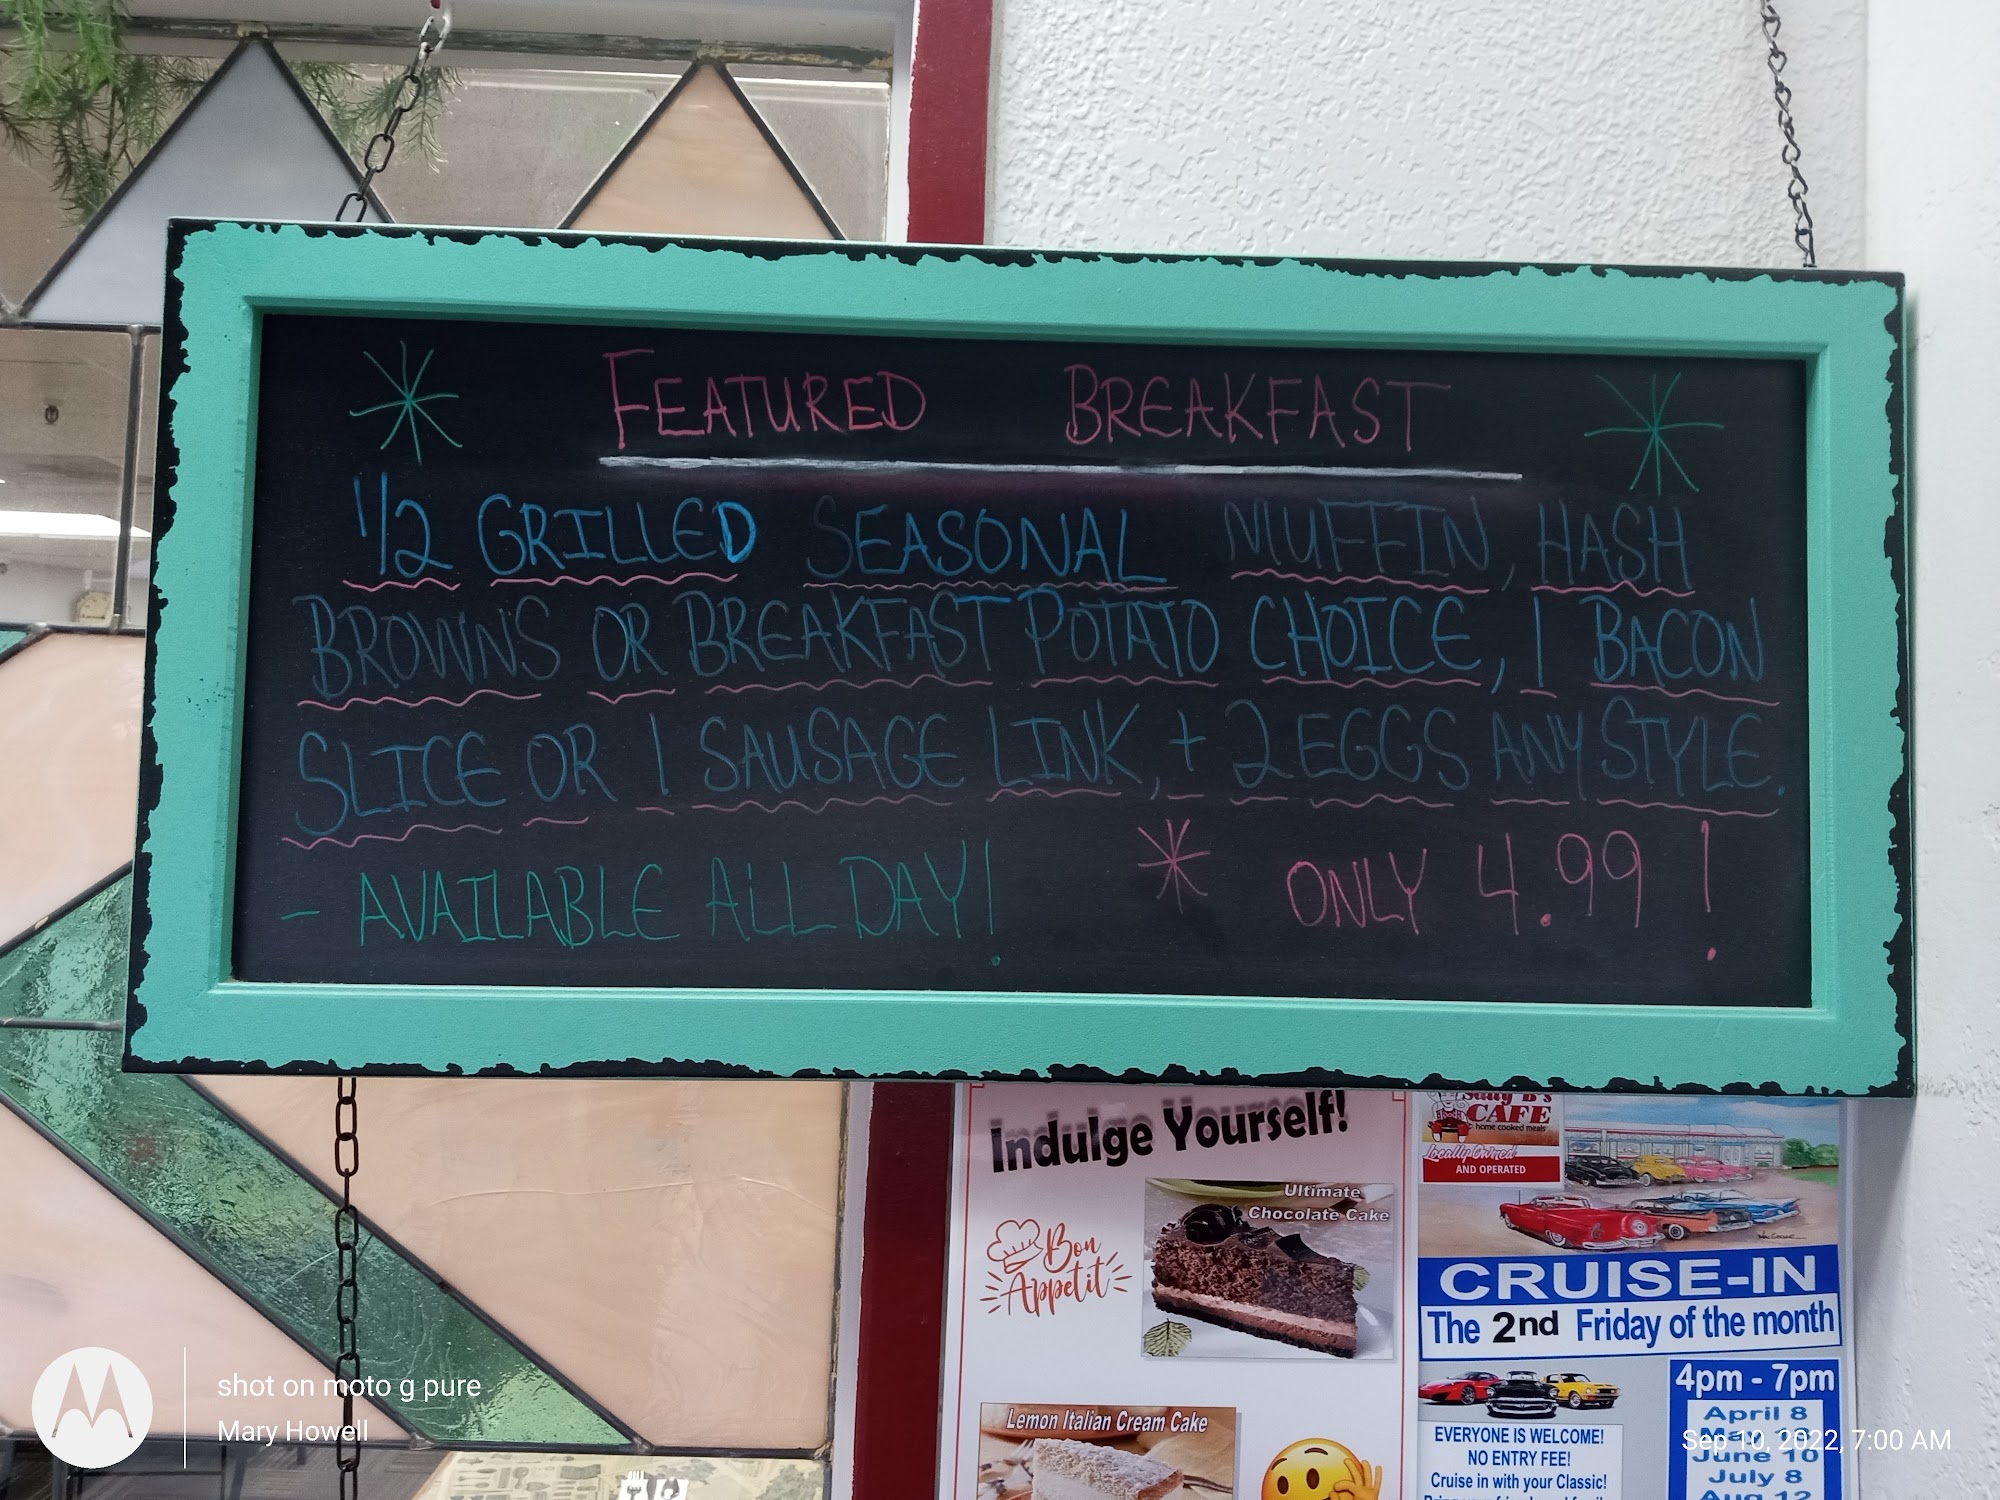 FEATURED BREAKFAST
1/2 GRILLED SEASONAL MUFFIN, HASH
BROWNS OR BREAKFAST POTATO CHOICE, 1 BACON
SLICE OR 1 SAUSAGE LINK, + 2 EGGS ANY STYLE.
- AVAILABLE ALL DAY! * ONLY 4.99!
Indulge Yourself!
Bon
Appetit
Ultimate
Chocolate Cake
Lemon Italian Cream Cake
Sally B's
CAFE
home cooked meals
Locally Owned
AND OPERATED
CRUISE-IN
The 2nd Friday of the month
4pm - 7pm
April 8
May 13
June 10
July 8
Aug 12
EVERYONE IS WELCOME!
NO ENTRY FEE!
Cruise in with your Classic!
shot on moto g pure
Mary Howell
Sep 10, 2022, 7:00 AM